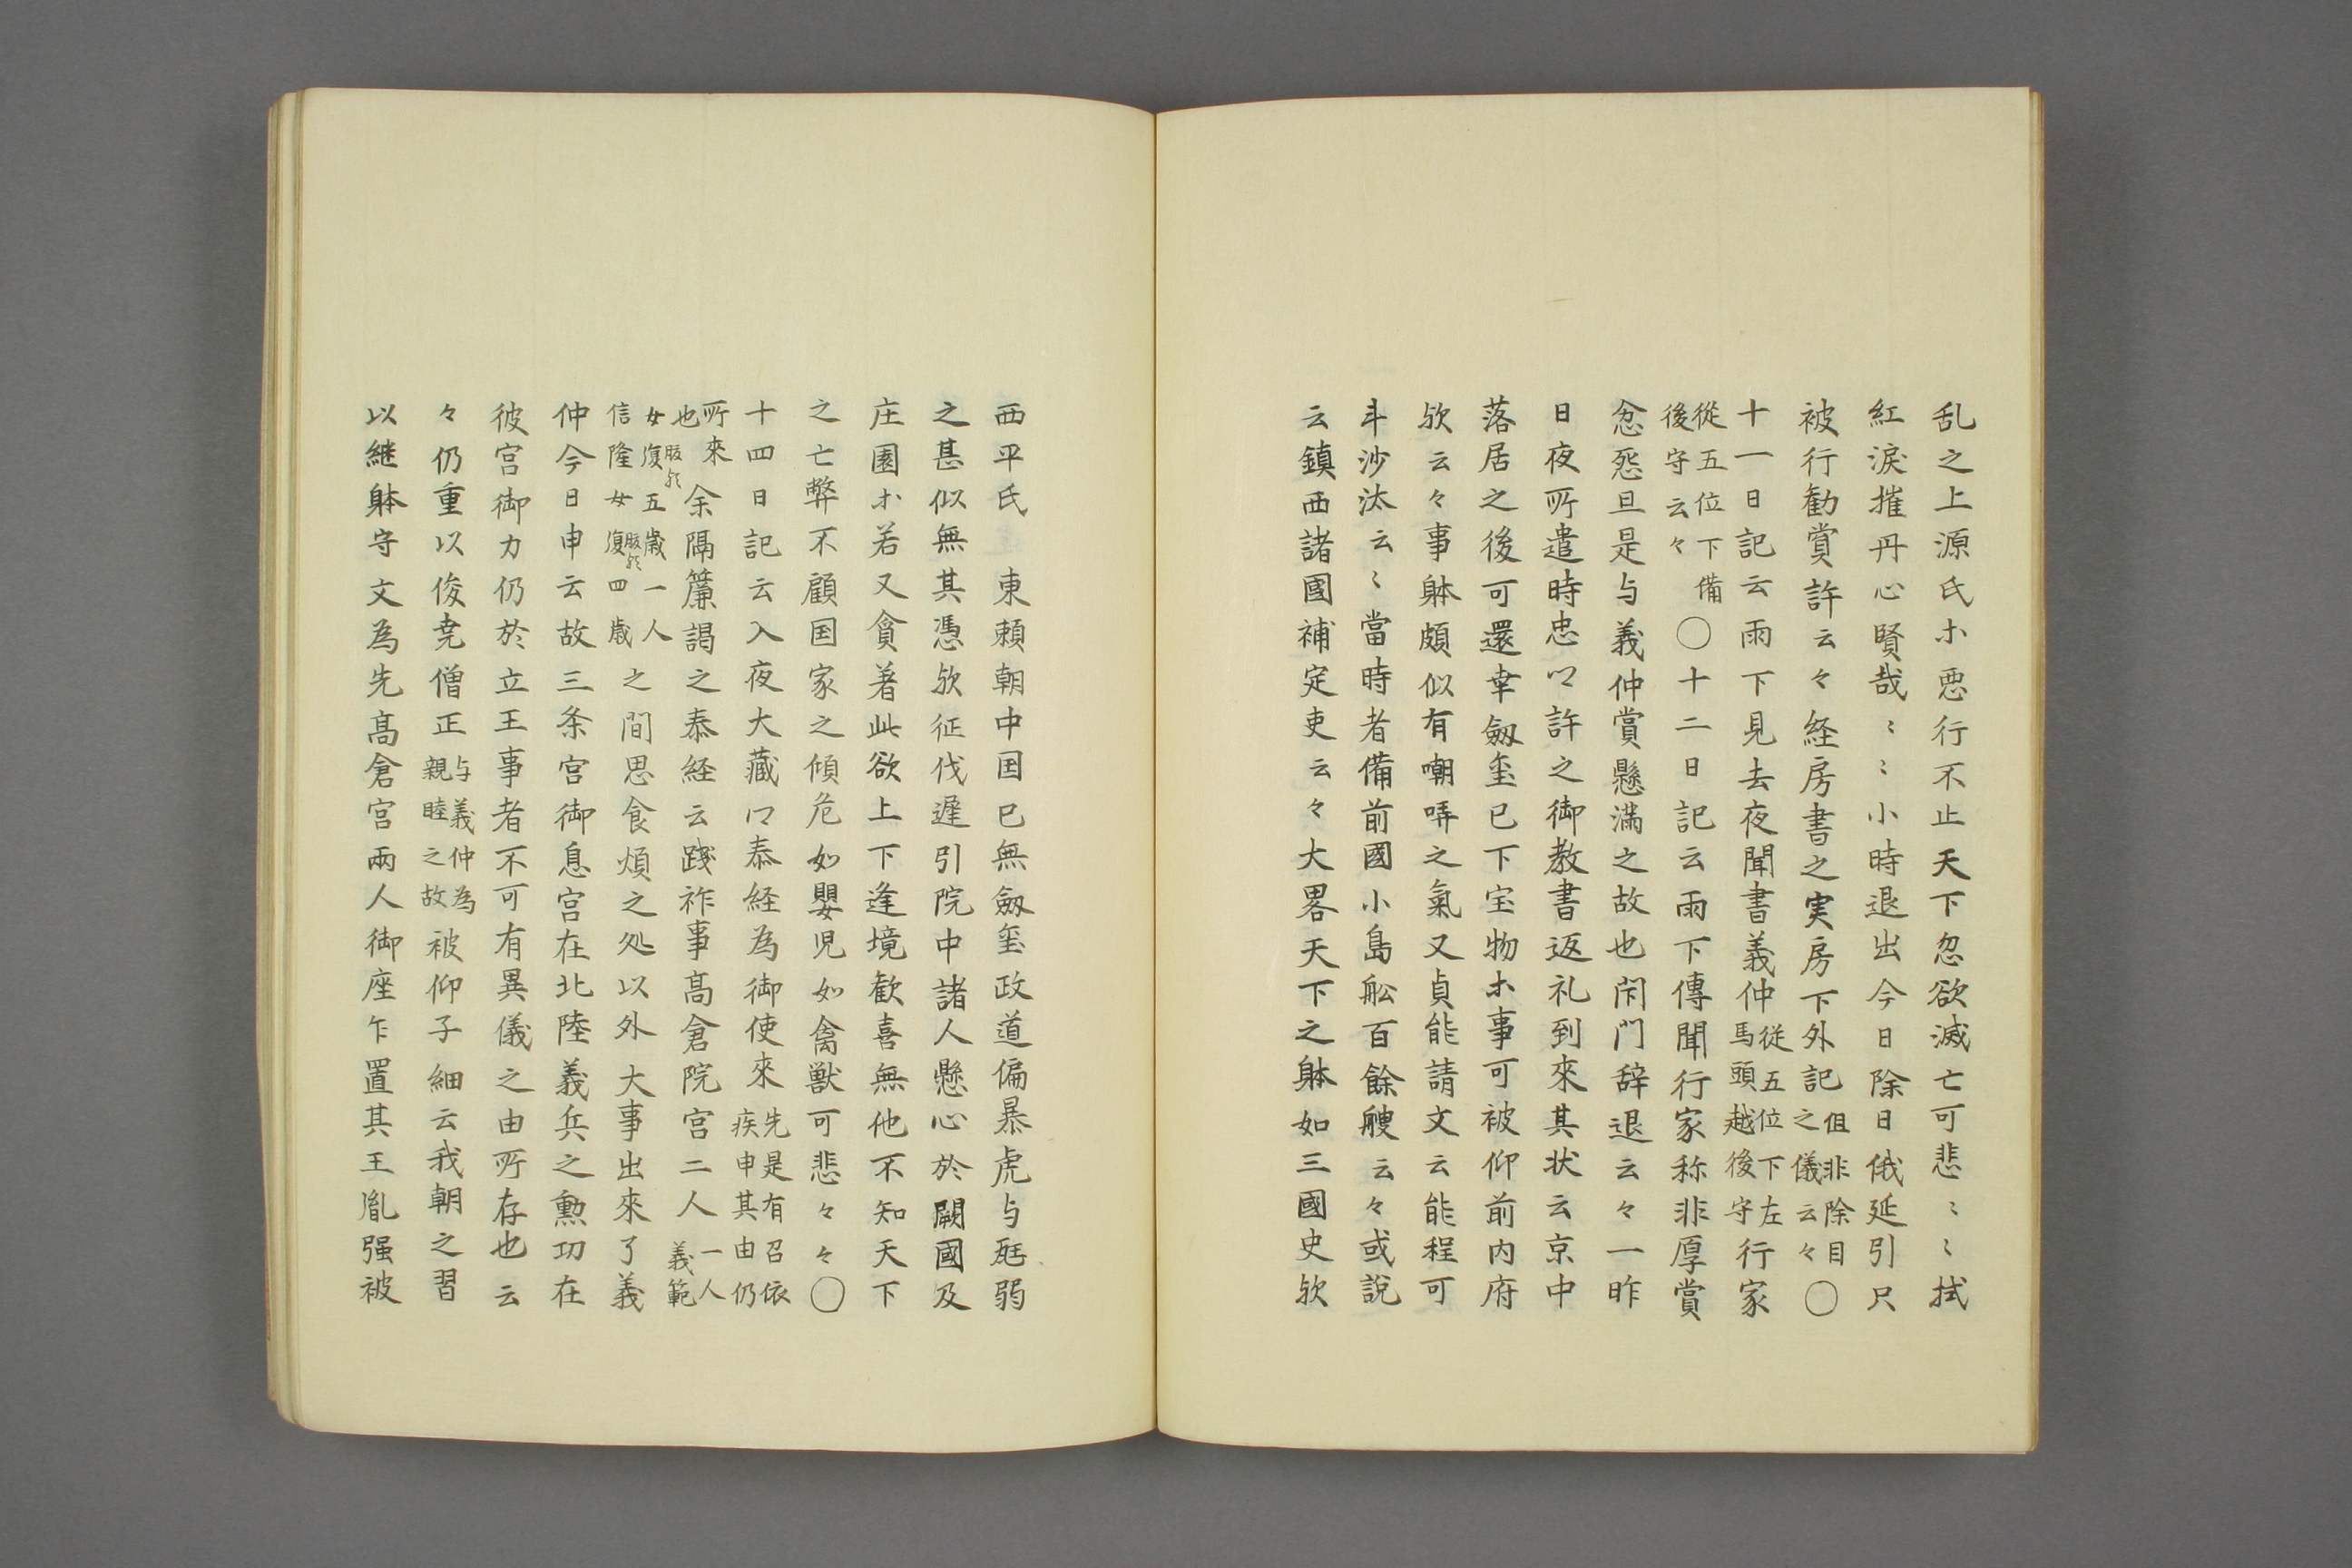 乱之上源氏ホ悪行不止天下忽欲滅亡可悲〻〻拭
紅涙摧丹心賢哉〻〻小時退出今日除日俄延引只
被行勧賞許云々経房書之実房下外記但非除目之儀云々〇
十一日記云雨下見去夜聞書義仲従五位下左馬頭越後守行家
從五位下備後守云々〇十二日記云雨下傳聞行家称非厚賞
忿怨旦是与義仲賞懸満之故也閇門辞退云々一昨
日夜所遣時忠卩許之御教書返礼到來其状云京中
落居之後可還幸劔璽已下宝物ホ事可被仰前内府
欤云々事躰頗似有嘲哢之氣又貞能請文云能程可
斗沙汰云〻當時者備前國小島舩百餘艘云々或說
云鎮西諸國補定吏云々大畧天下之躰如三國史欤
西平氏東頼朝中国已無劔璽政道偏暴虎与尩弱
之甚似無其憑欤征伐遅引院中諸人懸心於闕國及
庄園ホ若又貪著此欲上下逢境歓喜無他不知天下
之亡弊不顧国家之傾危如嬰児如禽獣可悲々々〇
十四日記云入夜大藏卩泰経為御使來先是有召依疾申其由仍
所來也余隔簾謁之泰経云踐祚事高倉院宮二人一人義範
女復五歳一人信隆女復四歳之間思食煩之処以外大事出來了義
仲今日申云故三条宮御息宮在北陸義兵之勲功在
彼宮御力仍於立王事者不可有異儀之由所存也云
々仍重以俊尭僧正与義仲為親睦之故被仰子細云我朝之習
以継躰守文為先高倉宮兩人御座乍置其王胤强被